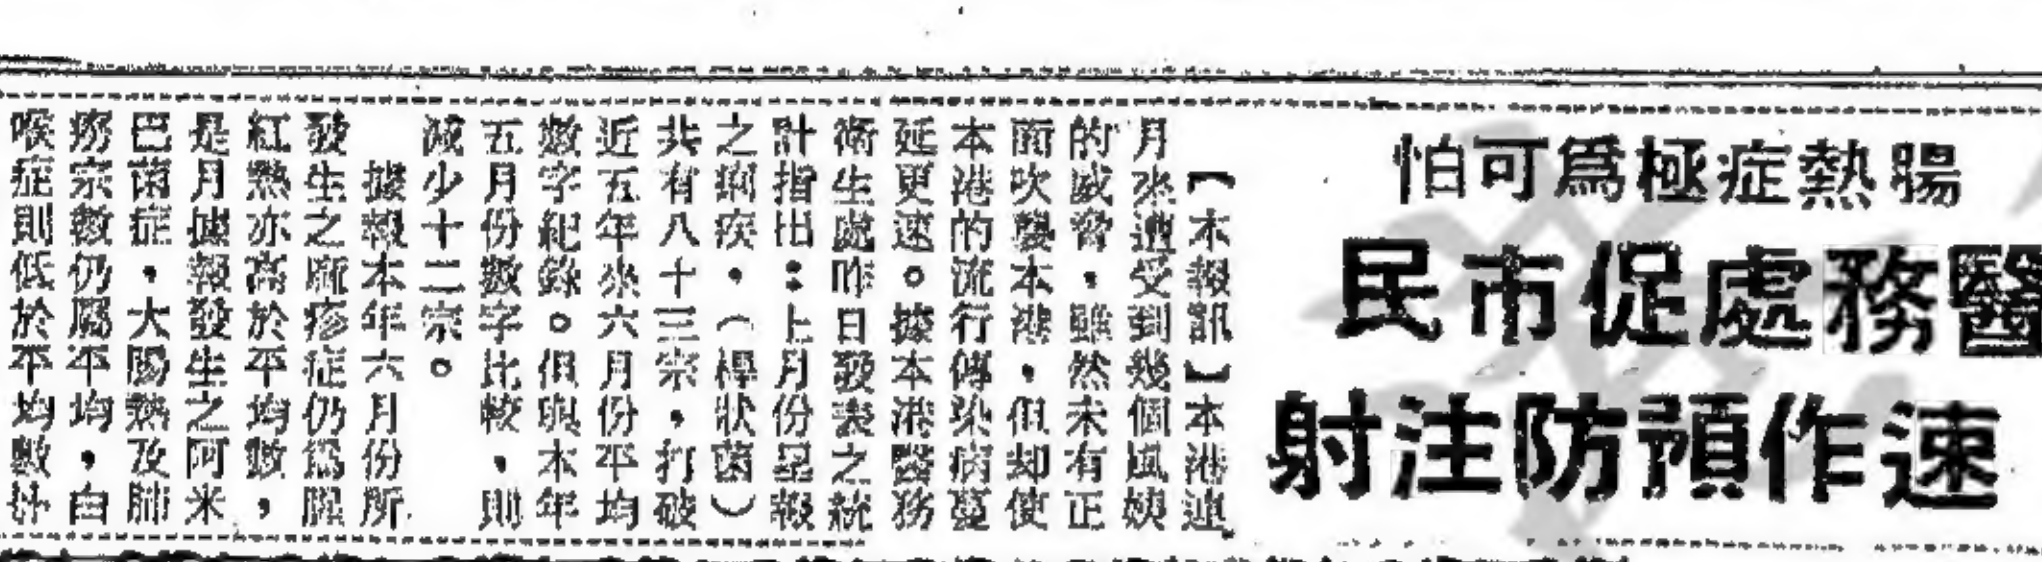 腸熱症極爲可怕
醫務處促市民
速作預防注射
【本報訊】本港連
月來遭受到幾個風姨
的威脅，雖然未有正
面吹襲本港，但却使
本港的流行傳染病蔓
延更速。據本港醫務
衛生處昨日發表之統
計指出：上月份呈報
之痢疾，（桿狀菌）
共有八十三宗，打破
近五年來六月份平均
數字紀錄。但與本年
五月份數字比較，則
減少十二宗。
據報本年六月份所
發生之麻疹症仍爲腥
紅熱亦高於平均數，
是月據報發生之阿米
巴菌症，大腸熱及肺
癆宗數仍屬平均，白
喉症則低於平均數